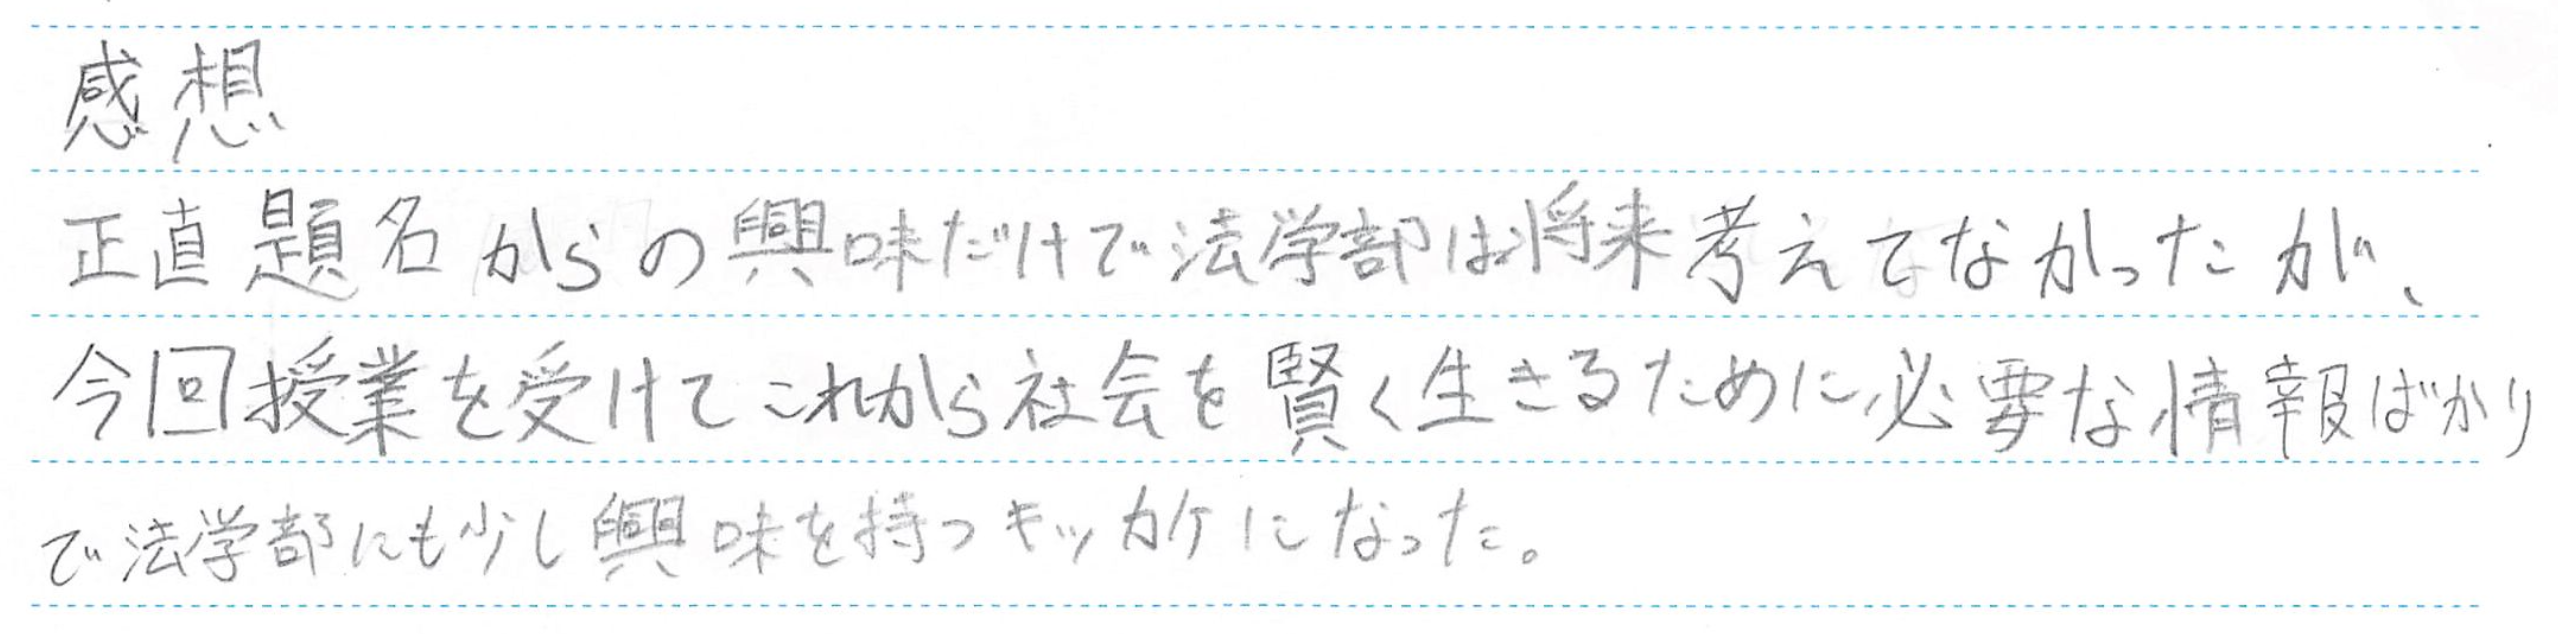 感想
正直題名からの興味だけで法学部は将来考えてなかったが、
今回授業を受けてこれから社会を賢く生きるために必要な情報ばかり
で法学部にも少し興味を持つキッカケになった。